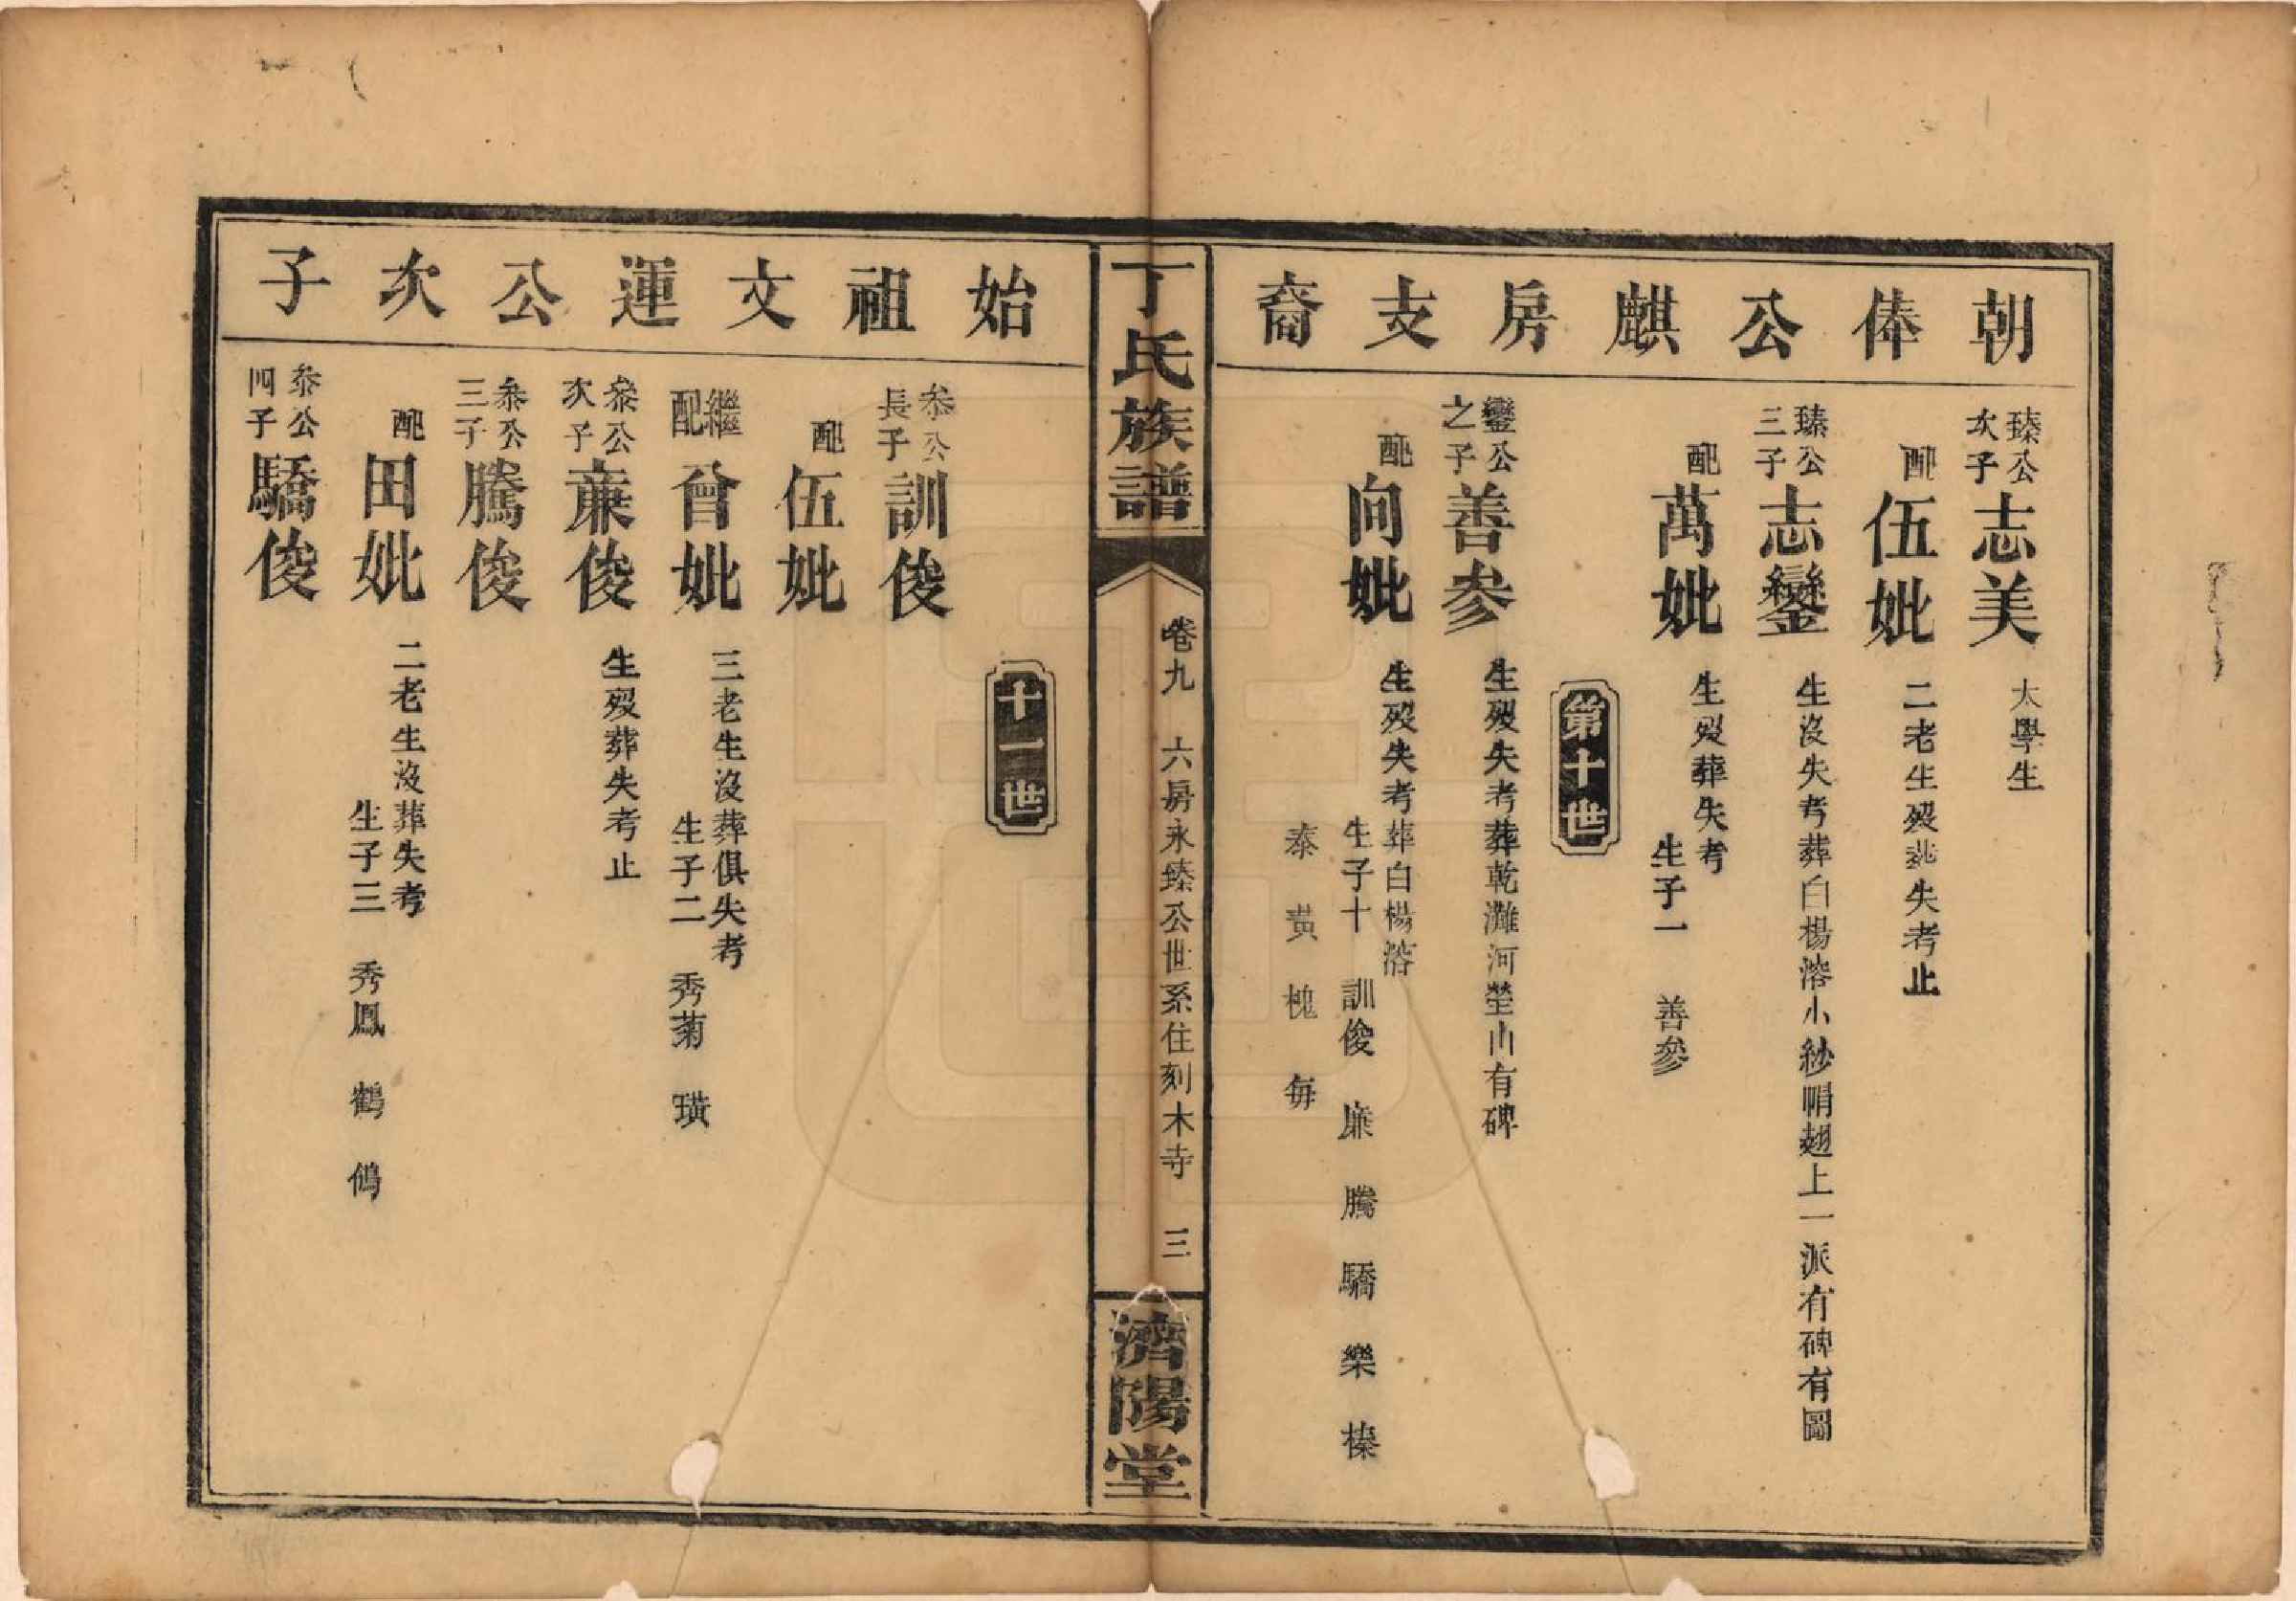 朝俸公麒房支裔
臻公次子志美 太學生
配伍妣 二老生歿葬失考止
臻公三子志鑾 生沒失考葬白楊溶小紗帽翅上一派有碑有圖
配萬妣 生歿葬失考
生子一 善參
第十世
鑾公之子善参 生歿失考葬乾灘河塋山有碑
配向妣 生歿失考葬白楊溶
生子十 訓俊 廉 騰 驕 樂 榛
泰 黄 槐 每
丁氏族譜
卷九 六房永臻公世系住刻木寺 三
濟陽堂
始祖文運公次子
十一世
叅公長子訓俊
配伍妣
繼配曾妣 三老生沒葬俱失考
生子二 秀菊 璜
叅公次子亷俊 生歿葬失考止
叅公三子騰俊
配田妣 二老生沒葬失考
生子三 秀鳳 鶴 鴿
叅公四子驕俊